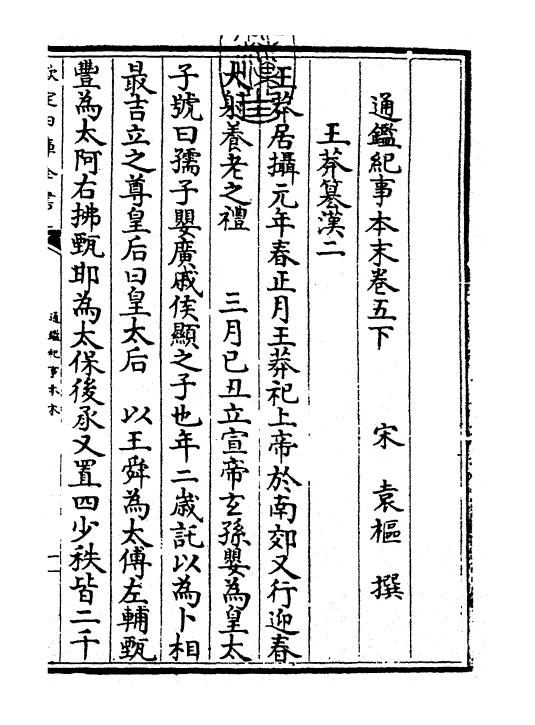 通鑑紀事本末卷五下　宋　袁樞　撰
王莽篡漢二
王莽居攝元年春正月王莽祀上帝於南郊又行迎春
大射養老之禮　三月已丑立宣帝玄孫嬰為皇太
子號曰孺子嬰廣戚侯顯之子也年二歳託以為卜相
最吉立之尊皇后曰皇太后　以王舜為太傅左輔甄
豐為太阿右拂甄邯為太保後承又置四少秩皆二千
欽定四庫全書
通鑑紀事本末